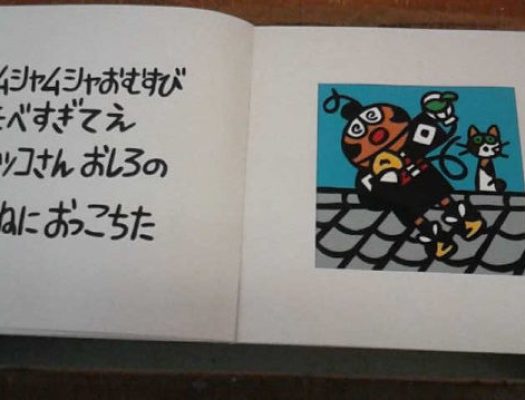 ムシャムシャおむすび
べすぎてえ
ッコさん おしろの
ねに おっこちた